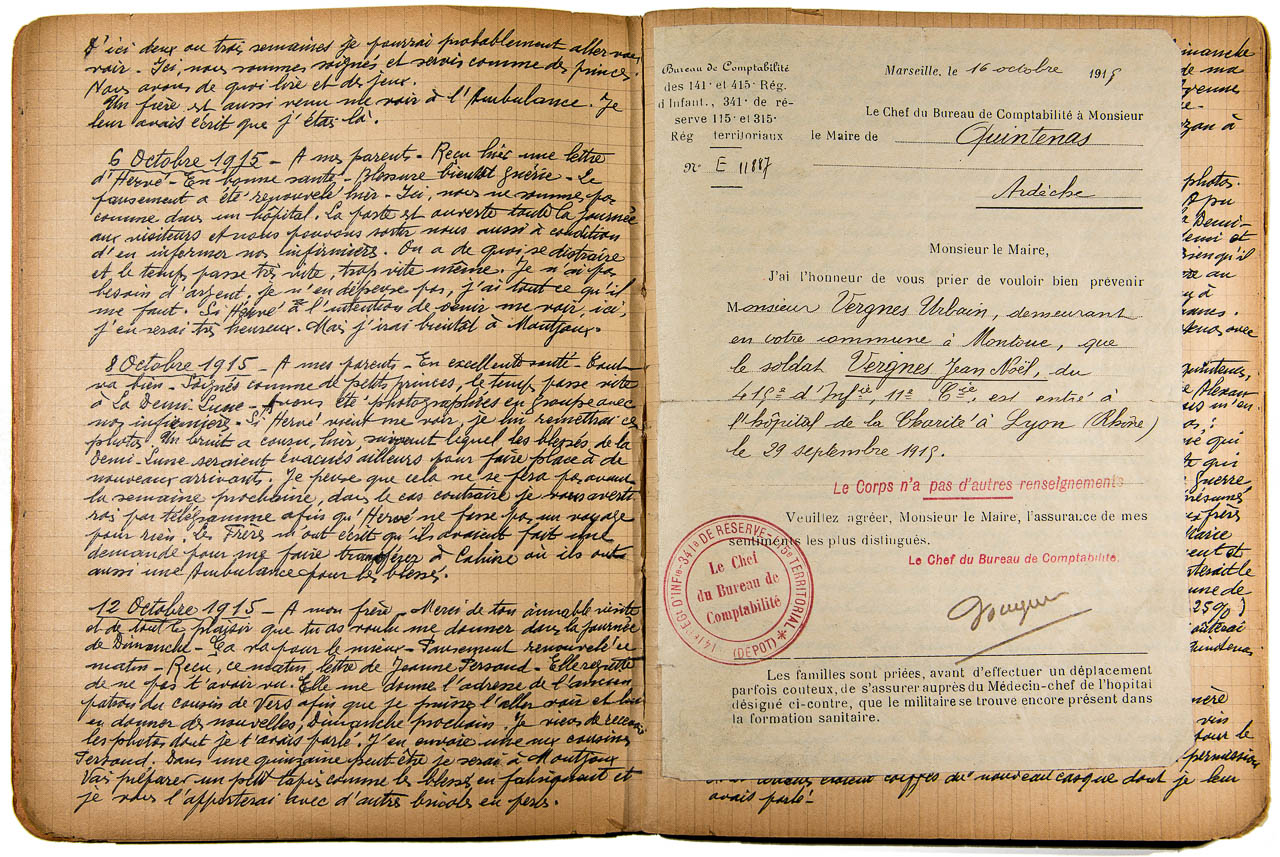 D'ici deux ou trois semaines je pourrai probablement aller vous
voir - Ici, nous sommes soignés et servis comme des princes.
Nous avons de quoi lire et des jeux.
Un frère est aussi venu me voir à l'Ambulance. Je
leur avais écrit que j'étais là.
6 Octobre 1915 - A mes parents - Reçu hier une lettre
d'Hervé - En bonne santé - Blessure bientôt guérie - Le
pansement a été renouvelé hier - Ici, nous ne sommes pas
comme dans un hôpital. La porte est ouverte toute la journée
aux visiteurs et nous pouvons sortir nous aussi à condition
d'en informer nos infirmiers. On a de quoi se distraire
et le temps passe très vite, trop vite même. Je n'ai pas
besoin d'argent, je n'en dépense pas, j'ai tout ce qu'il
me faut. Si Hervé a l'intention de venir me voir, ici,
j'en serai très heureux. Mais j'irai bientôt à Montjoux.
8 Octobre 1915 - A mes parents - En excellente santé - Tout
va bien - Soignés comme de petits princes, le temps passe vite
à La Demi-Lune - Avons été photographiés en groupe avec
nos infirmiers - Si Hervé vient me voir, je lui remettrai ces
photos - Un bruit a couru, hier, suivant lequel les blessés de la
Demi-Lune seraient évacués ailleurs pour faire place à de
nouveaux arrivants. Je pense que cela ne se fera pas avant
la semaine prochaine, dans le cas contraire je vous averti-
rai par télégramme afin qu'Hervé ne fasse pas un voyage
pour rien. Les Frères m'ont écrit qu'ils avaient fait une
demande pour me faire transférer à Caluire où ils ont
aussi une Ambulance pour les blessés.
12 Octobre 1915 - A mon frère - Merci de ton aimable visite
et de tout le plaisir que tu as voulu me donner dans la journée
de Dimanche - Ça va pour le mieux - Pansement renouvelé ce
matin - Reçu, ce matin, lettre de Jeanne Ferraud - Elle regrette
de ne pas t'avoir vu. Elle me donne l'adresse de l'ancien
patron du cousin de Vers afin que je puisse l'aller voir et lui
en donner des nouvelles, Dimanche prochain. Je viens de recevoir
les photos dont je t'avais parlé. J'en envoie une aux cousins
Ferraud. Dans une quinzaine peut être je serai à Montjoux
Vais préparer un petit tapis comme les blessés en fabriquent et
je vous l'apporterai avec d'autres bricoles en perles.
Bureau de Comptabilité
des 141e et 415e Rég.
d'Infant., 341e de ré-
serve 115e et 315e
Rég territoriaux
No E 11887
Marseille, le 16 octobre 1915
Le Chef du Bureau de Comptabilité à Monsieur
le Maire de Quintenas
Ardèche
Monsieur le Maire,
J'ai l'honneur de vous prier de vouloir bien prévenir
Monsieur Vergnes Urbain, demeurant
en votre commune à Montouc, que
le soldat Vergnes Jean Noël, du
415e d'Infie, 11e Cie, est entré à
l'hôpital de la Charité à Lyon (Rhône)
le 29 septembre 1915.
Le Corps n'a pas d'autres renseignements
Veuillez agréer, Monsieur le Maire, l'assurance de mes
sentiments les plus distingués.
Le Chef du Bureau de Comptabilité.
141e REGt D'INFie - 341e DE RÉSERVE - 115e TERRITORIAL
Le Chef
du Bureau de
Comptabilité
(DEPOT)
Les familles sont priées, avant d'effectuer un déplacement
parfois couteux, de s'assurer auprès du Médecin-chef de l'hopital
désigné ci-contre, que le militaire se trouve encore présent dans
la formation sanitaire.
dimanche
de ma
à
photos.
Demi-
et
qu'il
au
à
avec
Quintenas,
qui
qui
guerre
frères
et
le
de
25%)
le
permission
étaient coiffés du nouveau casque dont je leur
avais parlé -